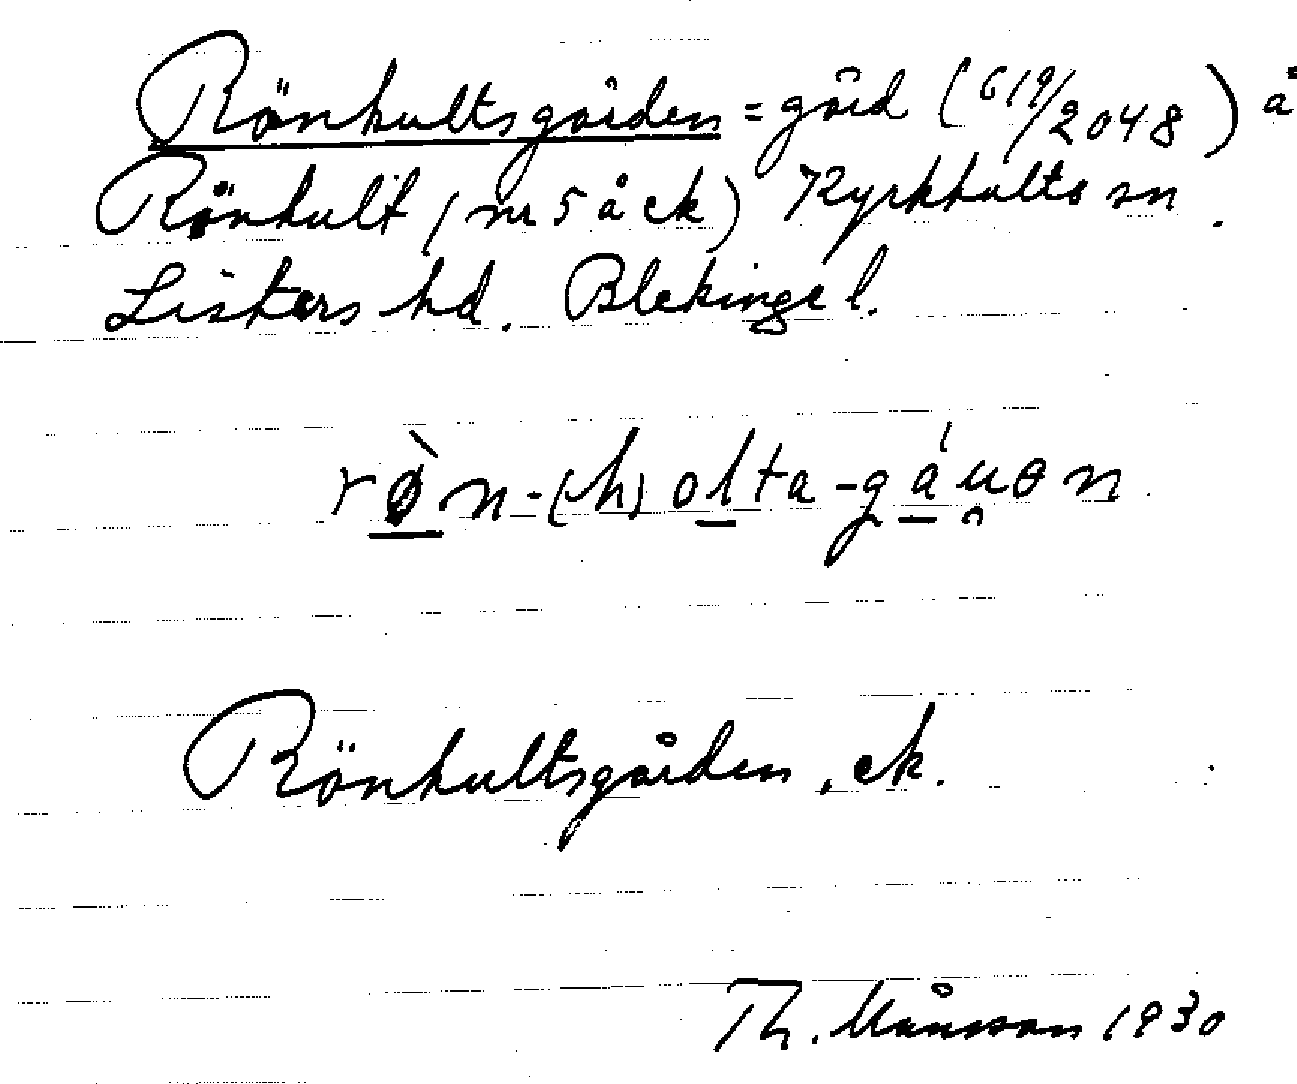 Rönhultsgården = gård (619/2048) å
Rönhult (nr 5 å ek) Kyrkhults sn.
Listers hd. Blekinge l.
rø̀n-(h)olta-gáu̯ən
Rönhultsgården, ek.
Th. Månsson 1930